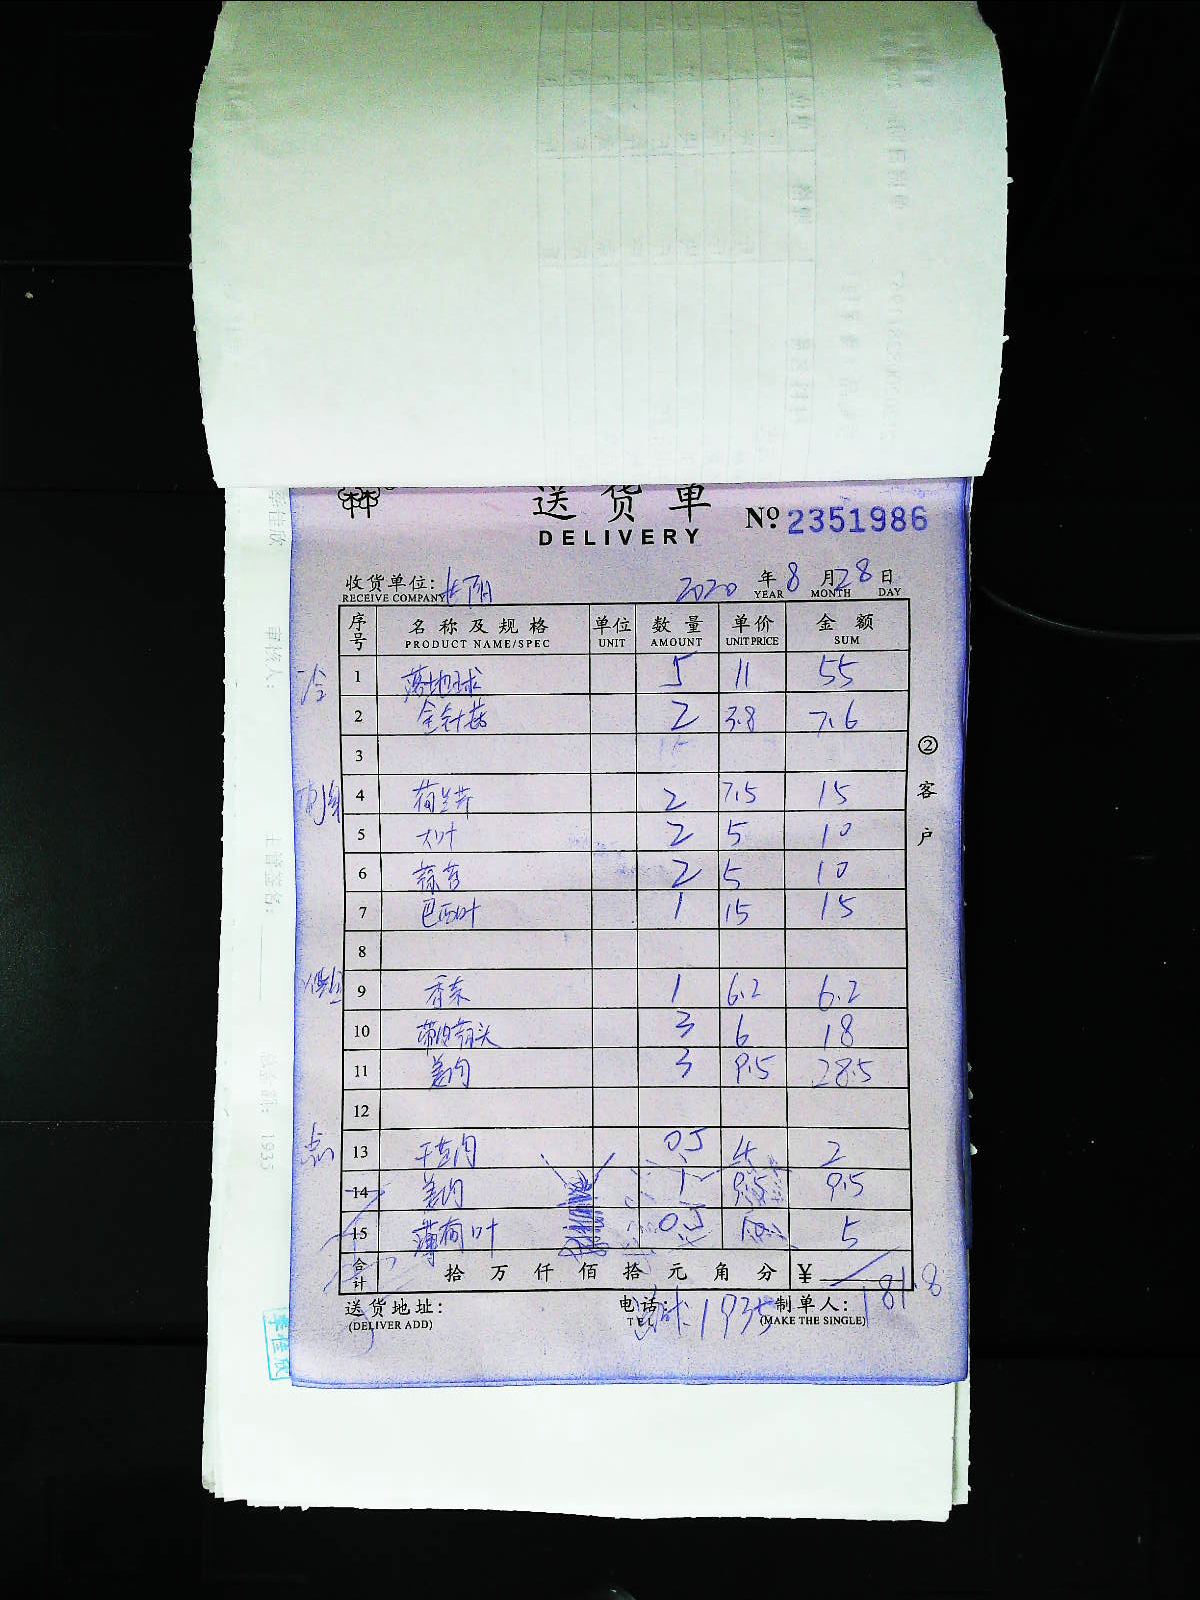 送 货 单
DELIVERY
№ 2351986
收货单位:
RECEIVE COMPANY
2020 年 8 月 28 日
YEAR MONTH DAY
序号 名称及规格 单位 数量 单价 金额
PRODUCT NAME/SPEC UNIT AMOUNT UNIT PRICE SUM
冷
1 落地球 5 11 55
2 金针菇 2 3.8 7.6
3
刺身
4 荷兰芹 2 7.5 15
5 大叶 2 5 10
6 蒜苔 2 5 10
7 巴西叶 1 15 15
8
9 香菜 1 6.2 6.2
10 带皮蒜头 3 6 18
11 姜肉 3 9.5 28.5
12
点心
13 干葱肉 0.5 4 2
14 姜肉 1 9.5 9.5
15 薄荷叶 0.5 10 5
合计 拾 万 仟 佰 拾 元 角 分 ¥ 181.8
送货地址: 电话: 制单人:
(DELIVER ADD) TEL (MAKE THE SINGLE)
1935
②
客
户
审核人:
主管签名:
1935
李佳欣